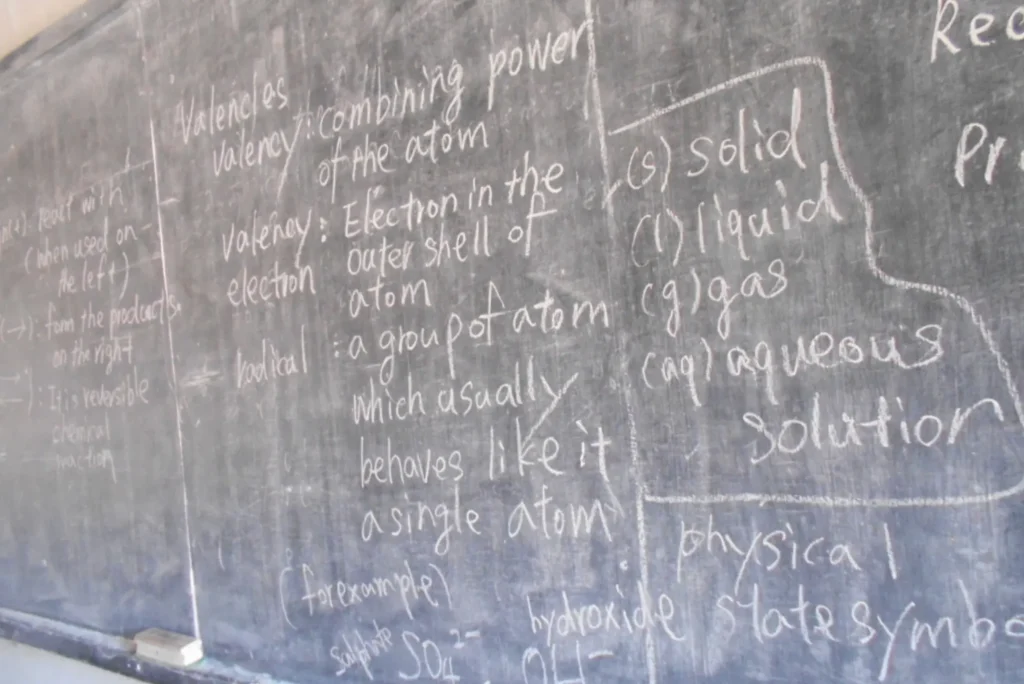 react with
(when used on
the left)
(→): form the products
on the right
): It is reversible
chemical
reaction
Valencies
valency: combining power
of the atom
valency: Electron in the
electron outer shell of
atom
Radical : a group of atom
which usually
behaves like it
a single atom
(for example)
sulphate SO₄²⁻ hydroxide OH⁻
(s) solid
(l) liquid
(g) gas
(aq) aqueous
solution
physical
state symbo
Rec
Pr